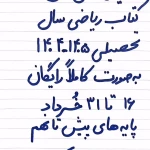 کتاب ریاضی سال
تحصیلی ۱۴۰۵-۱۴۰۴
به صورت کاملاً رایگان
۱۶ تا ۳۱ خُرداد
پایه های پیش تا نهم